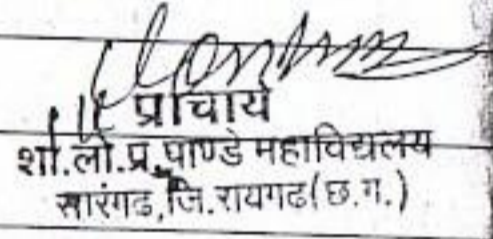 प्राचार्य
शा.लो.प्र.पाण्डे महाविद्यालय
सारंगढ,जि.रायगढ(छ.ग.)